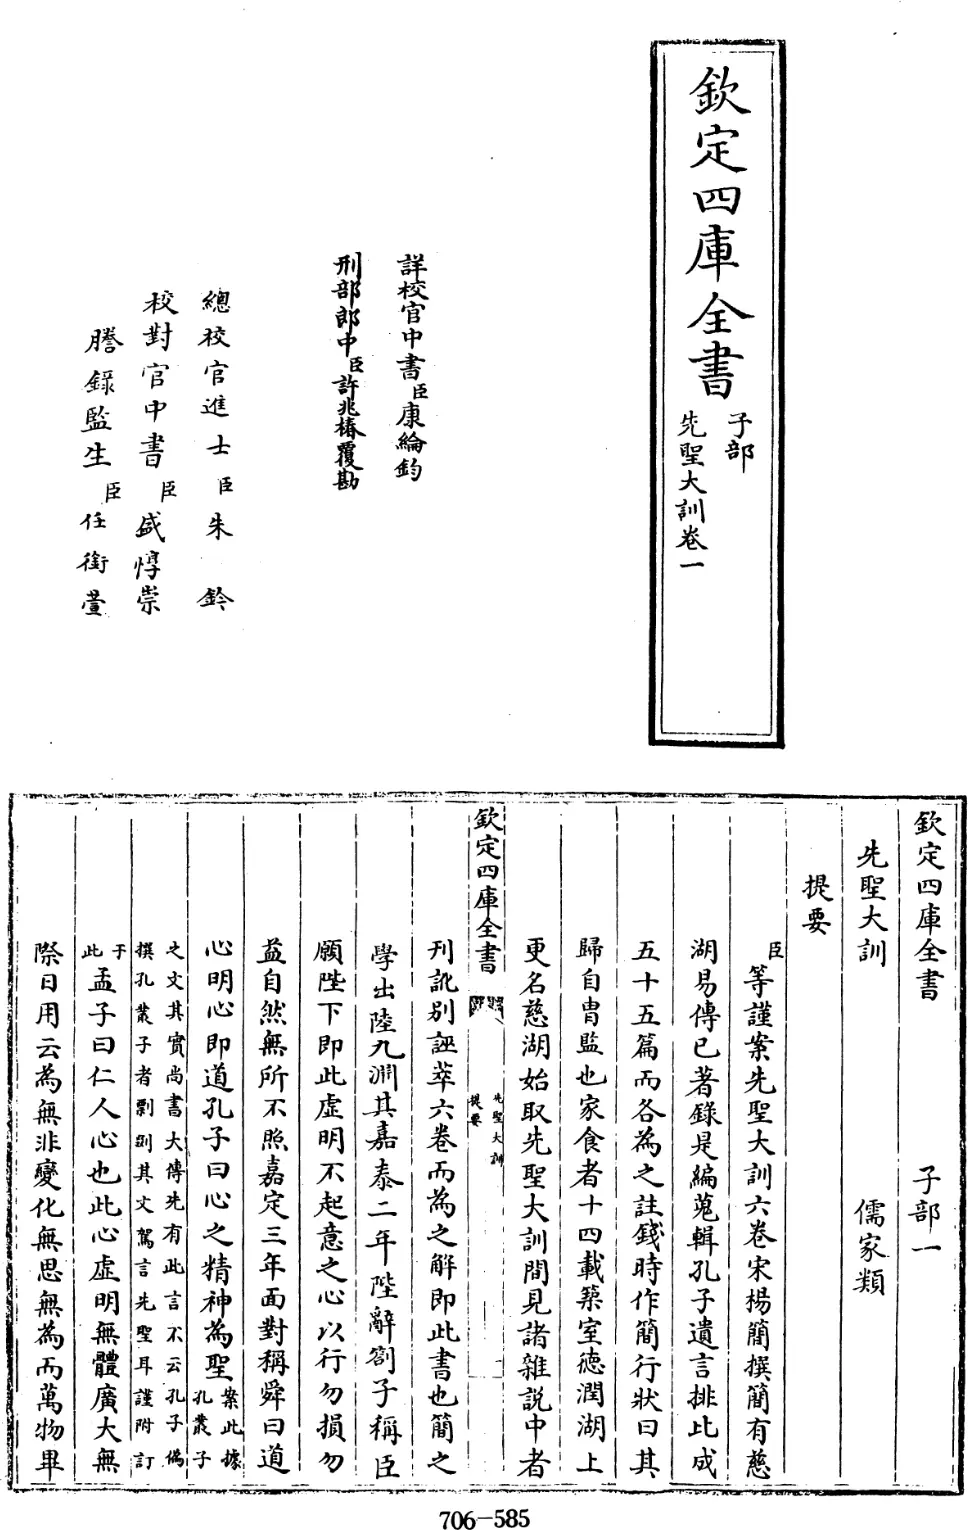 欽定四庫全書
子部
先聖大訓卷一
詳校官中書臣康綸鈞
刑部郎中臣許兆椿覆勘
總校官進士臣朱鈐
校對官中書臣盛惇崇
謄錄監生臣任銜蕙
欽定四庫全書 子部一
先聖大訓 儒家類
提要
臣等謹案先聖大訓六卷宋楊簡撰簡有慈
湖易傳已著錄是編蒐輯孔子遺言排比成
五十五篇而各為之註錢時作簡行狀曰其
歸自胄監也家食者十四載築室德潤湖上
更名慈湖始取先聖大訓間見諸雜説中者
欽定四庫全書
先聖大訓
提要
一
刋訛别誣萃六卷而為之解即此書也簡之
學出陸九淵其嘉泰二年陛辭劄子稱臣
願陛下即此虛明不起意之心以行勿損勿
益自然無所不照嘉定三年面對稱舜曰道
心明心即道孔子曰心之精神為聖案此據孔叢子
之文其實尚書大傳先有此言不云孔子偽
撰孔叢子者剽剟其文駕言先聖耳謹附訂
于此孟子曰仁人心也此心虛明無體廣大無
際日用云為無非變化無思無為而萬物畢
706-585